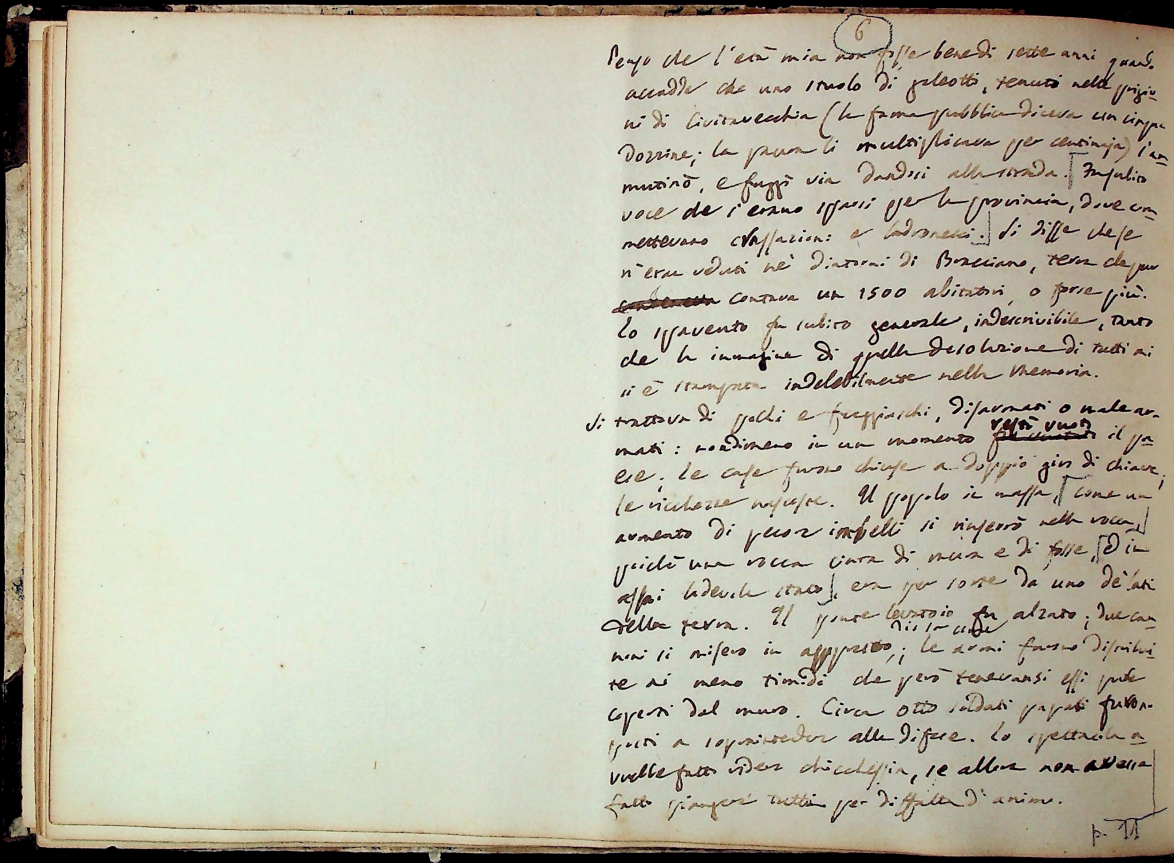 6
Penso che l'età mia non fosse bene di sette anni quando
accadde che uno stuolo di galeotti, tenuti nelle prigio-
ni di Civitavecchia (la fama pubblica diceva un cinque
dozzine; la paura li moltiplicava per centinaja) s'am-
mutinò, e fuggì via dandosi alla strada. [In subito
voce che s'erano sparsi per la provincia, dove com-
mettevano grassazioni e ladronecci.] Si disse che se
n'eran veduti ne' dintorni di Bracciano, terra che pur
contava un 1500 abitatori, o forse più.
Lo spavento fu subito generale, indescrivibile, tanto
che la immagine di quella desolazione di tutti mi
si è stampata indelebilmente nella memoria.
Si trattava di pochi e fuggiaschi, disarmati o male ar-
mati: nondimeno in un momento restò vuoto il pa-
ese; le case furono chiuse a doppio giro di chiave,
le ricchezze nascoste. Il popolo in massa, [come un
armento di pecore imbelli] si rinserrò nella rocca,
poiché una rocca cinta di mura e di fosse, [ed in
assai lodevole stato], era per sorte da uno de' lati
della terra. Il ponte levatojo fu alzato; due can-
noni si misero in appresto; le armi furono distribui-
te ai meno timidi che però tenevansi essi pure
coperti dal muro. Circa otto soldati pagati furon
posti a soprintender alle difese. Lo spettacolo a-
vrebbe fatto rider chicchessia, se allora non avesse
fatto piangere tutti per diffalta d'animo.
p. 11